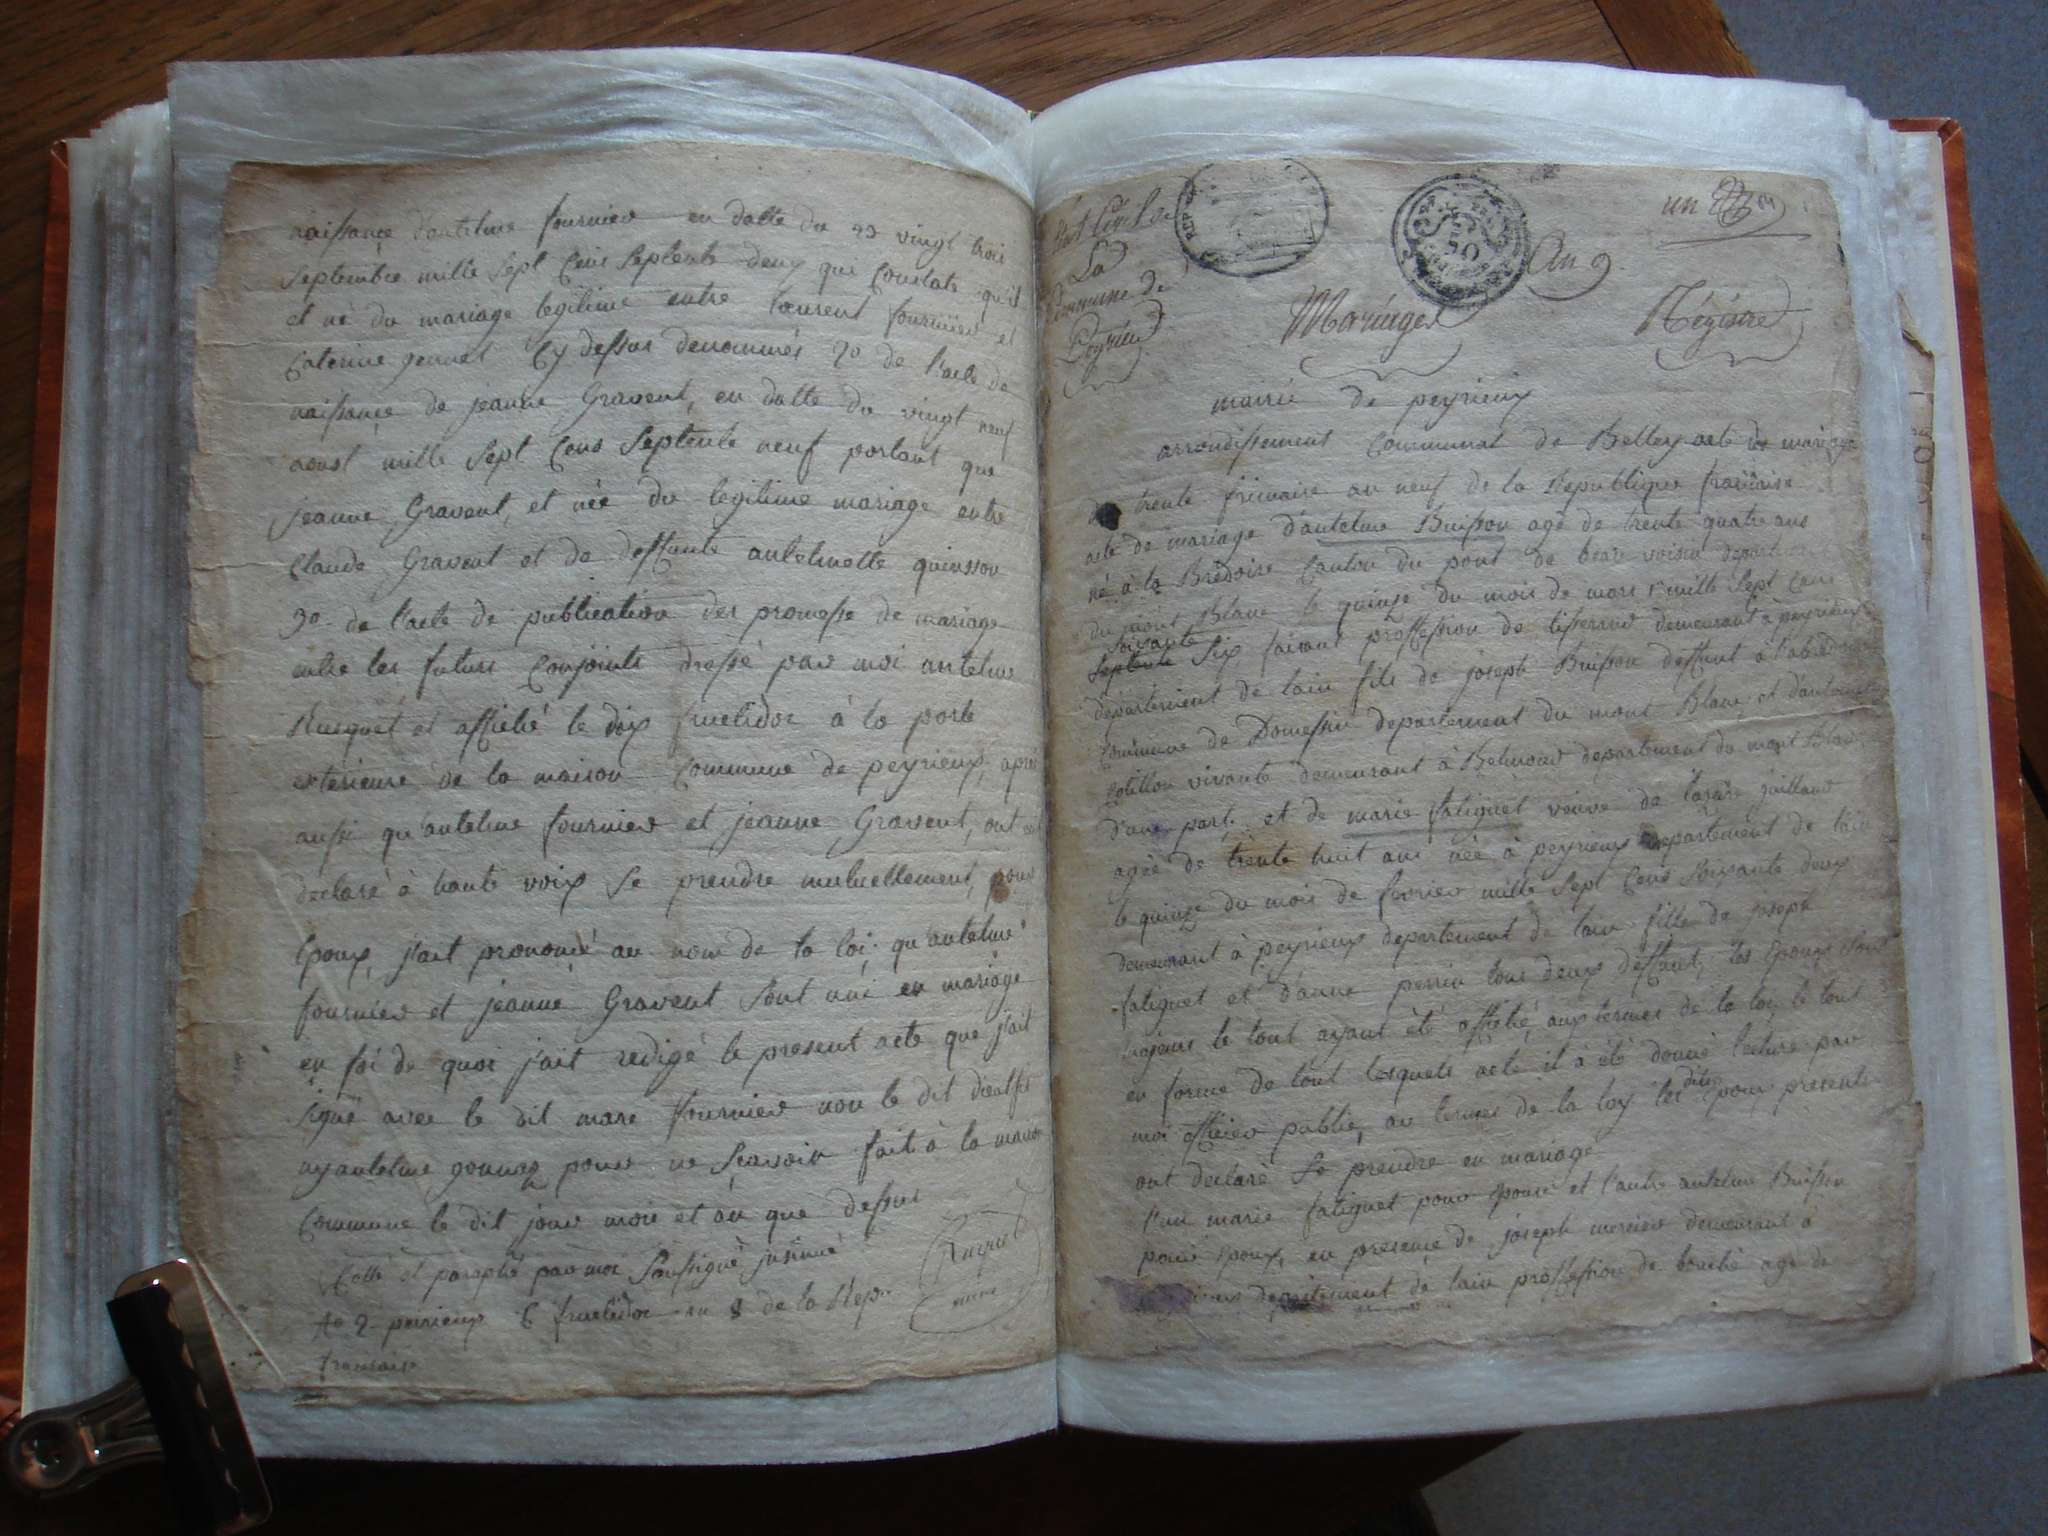 naissance d'antelme fournier en datte du 23 vingt trois
septembre mille sept cens septente deux que constate qu'il
et né du mariage legitime entre laurent fournier et
caterine gonnet cy dessus denommés 2o de l'acte de
naissance de jeanne Gravent, en datte du vingt neuf
aoust mille sept cens septente neuf portant que
jeanne Gravent, et née du legitime mariage entre
claude Gravent et de deffunte antelmette quinsson
3o de l'acte de publication des promesse de mariage
entre les futurs conjoints dressé par moi antelme
Rusquet et affiché le dix fruclidor à la porte
exterieure de la maison commune de peyrieux, après
aussi qu'antelme fournier et jeanne Gravent, ont
declaré à haute voix se prendre mutuellement, pour
Epoux, j'ait prononcé au nom de la loi qu'antelme
fournier et jeanne Gravent sont uni en mariage
en foi de quoi j'ait redigé le present acte que j'ait
signé avec le dit marc fournier non le dit
ny antelme gonnez pour ne scavoir fait à la maison
commune le dit jour mois et an que dessus
Cotté et paraphé par moi soussigné
peirieux 6 fruclidor an 8 de la Rep
francaise
Rusquet
maire
La
Commune de
Peyrieu
un
An 9
Mariages Régistre
mairie de peyrieux
arrondissement communal de Belley acte de mariage
trente frimaire an neuf de la Republique francaise
acte de mariage d'antelme Buisson agé de trente quatre ans
né à la Bredoire canton du pont de beau voisin departement
du mont Blanc le quinze du mois de mars mille sept cens
soixante
septente six faisant proffession de tisserand demeurant à peyrieux
departement de lain fils de joseph Buisson deffunt à
commune de Domessin departement du mont Blanc et d'antelmette
Cotillon vivante demeurant à Belmont departement du mont Blanc
d'une part, et de marie faliguet veuve de lasare gaillard
agée de trente huit ans née à peyrieux departement de lain
le quinze du mois de fevrier mille sept cens soixante deux
demeurant à peyrieux departement de lain fille de joseph
faliguet et d'anne perrin tous deux deffunt, les Epoux etant
majeurs le tout ayant été affiché, aux termes de la loy le tout
en forme de tout lesquels acte il à été donné lecture par
moi officier public, au termes de la loy les dits Epoux presents
ont declaré se prendre en mariage
l'un marie faliguet pour Epouse et l'autre antelme Buisson
pour Epoux, en presence de joseph mercier demeurant à
departement de lain proffession de agé de